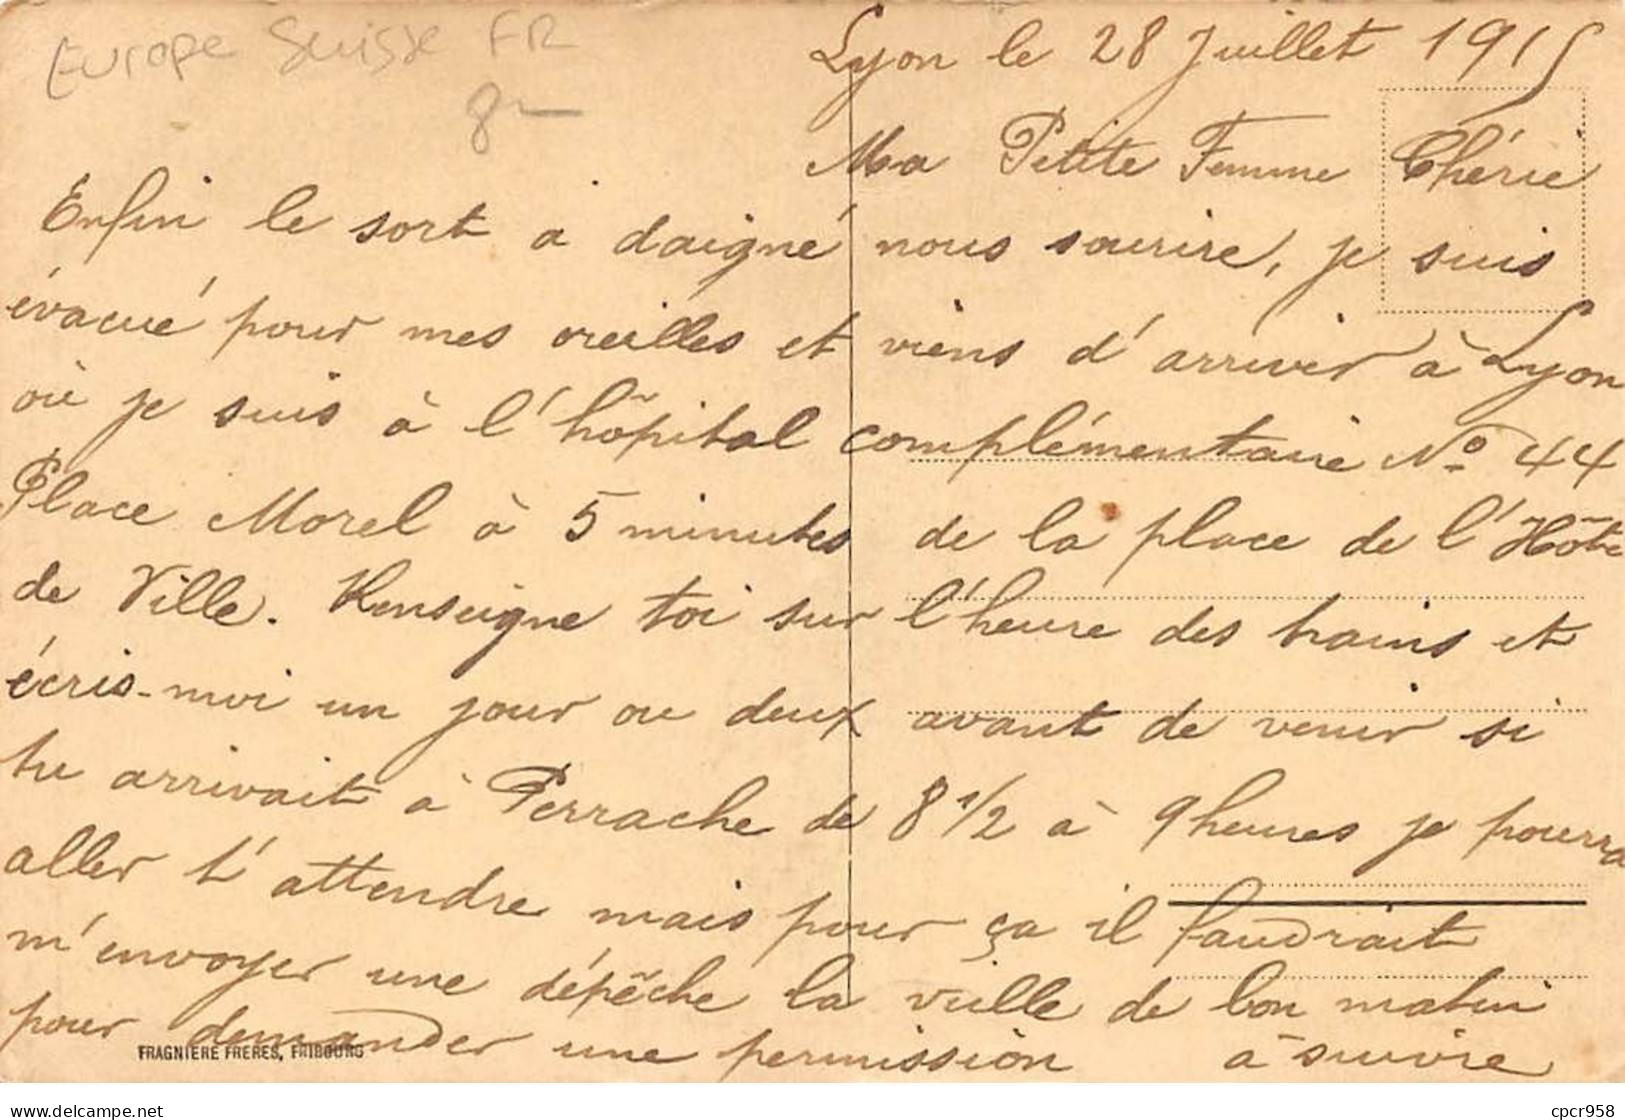 Europe Suisse FR
8-
Lyon le 28 Juillet 1915
Ma Petite Femme Chérie
Enfin le sort a daigné nous sourire, je suis
évacué pour mes oreilles et viens d'arriver à Lyon
où je suis à l'hôpital complémentaire No 44
Place Morel à 5 minutes de la place de l'Hôtel
de Ville. Renseigne toi sur l'heure des trains et
écris-moi un jour ou deux avant de venir si
tu arrivait à Perrache de 8 1/2 à 9 heures je pourra
aller t'attendre mais pour ça il faudrait
m'envoyer une dépêche la veille de bon matin
pour demander une permission à suivre
FRAGNIERE FRERES, FRIBOURG
cpcr958